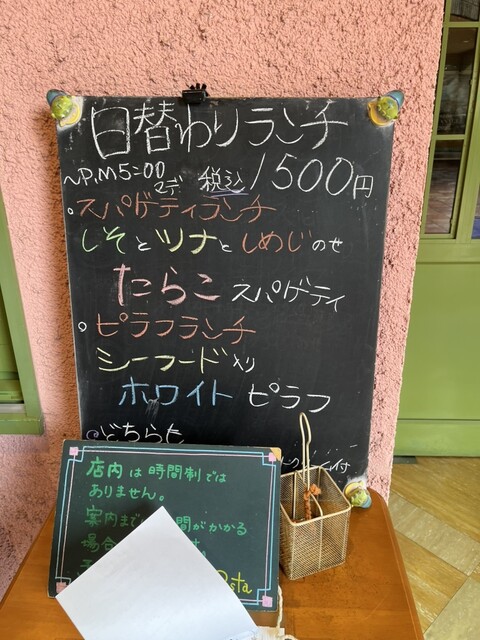 日替わりランチ
~P,M5:00まで 税込 1500円
・スパゲティランチ
しそとツナとしめじのせ
たらこスパゲティ
・ピラフランチ
シーフード入り
ホワイトピラフ
どちらも
付
店内は時間制では
ありません。
案内まで 間がかかる
場合